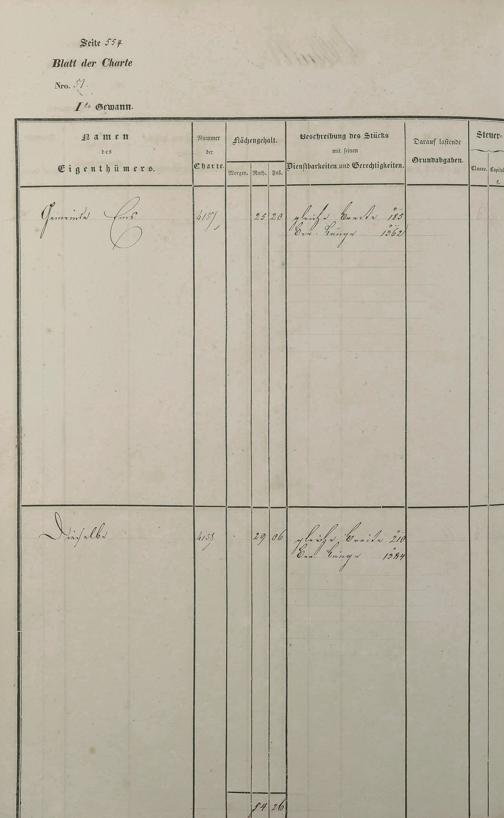 Seite 557
Blatt der Charte
Nro. 51
I te Gewann.
Namen
des
Eigenthümers.
Nummer
der
Charte.
Flächengehalt.
Morgen. Ruth. Fuß.
Beschreibung des Stücks
mit seinen
Dienstbarkeiten und Gerechtigkeiten.
Darauf lastende
Grundabgaben.
Steuer-
Classe. Capital
Gemeinde Ems 25 20 gleiche Breite 185
ber. Länge 1362
Dieselbe 29 06 gleiche Breite 210
ber. Länge 1384
54 26